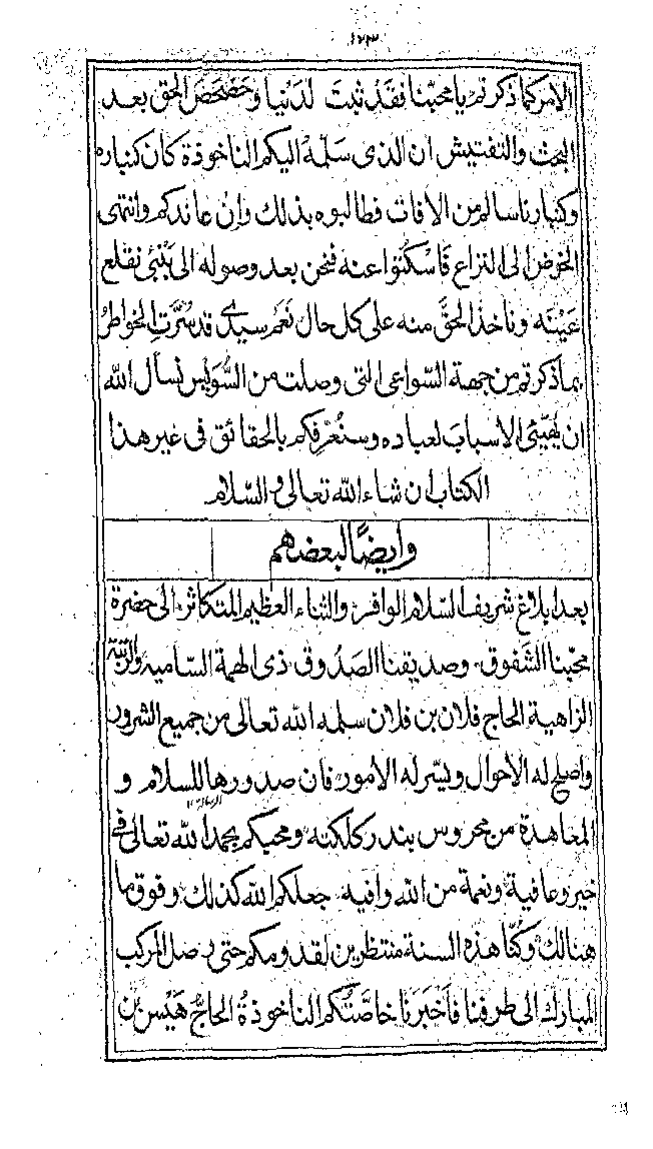 ١٢٣
الامر كما ذكرتم يا محبنا فقد ثبت لدينا وحَصْحَصَ الحق بعد
البحث والتفتيش ان الذى سلّمه اليكم الناخوذة كان كنباره
وكنبارنا سالم من الآفات فطالبوه بذلك وان عاندكم وانتهى
الخوض الى النزاع فاسكتوا عنه فنحن بعد وصوله الى بَنْبَئ نقلع
عينَه وناخذ الحقَّ منه على كل حال نعم سيدى قد سُرَّتِ الخواطرُ
بما ذكرتم من جهة السّواعى التى وصلت من السُّوَيس نسأل الله
ان يُهَيّئ الاسبابَ لعباده وسنُعرّفكم بالحقائق فى غير هذا
الكتاب ان شاء الله تعالى والسّلام
وايضًا لبعضهم
بعد ابلاغ شريف السّلام الوافر والثناء العظيم المتكاثر الى حضرة
محبّنا الشفوق وصديقنا الصَدُوق ذى الهمة السّامية والرتبة
الزاهية الحاج فلان بن فلان سلمه الله تعالى من جميع الشرور
واصلح له الأحوال ويسّر له الامور فان صدورها للسلام و
المعاهدة من محروس بندر كلكته ومحبكم بحمد الله تعالى فى
خير وعافية ونعمة من الله وافيه جعلكم الله كذلك وفوق ما
هنالك وكنّا هذه السنة منتظرين لقدومكم حتى وصل المركب
المبارك الى طرفنا فأخبَرَنا خاصَّتُكم الناخوذةُ الحاجّ بن